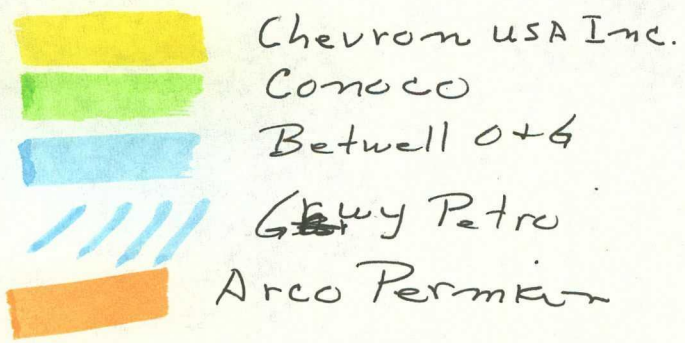 Chevron USA Inc.
Conoco
Betwell O+G
Petro
Arco Permian